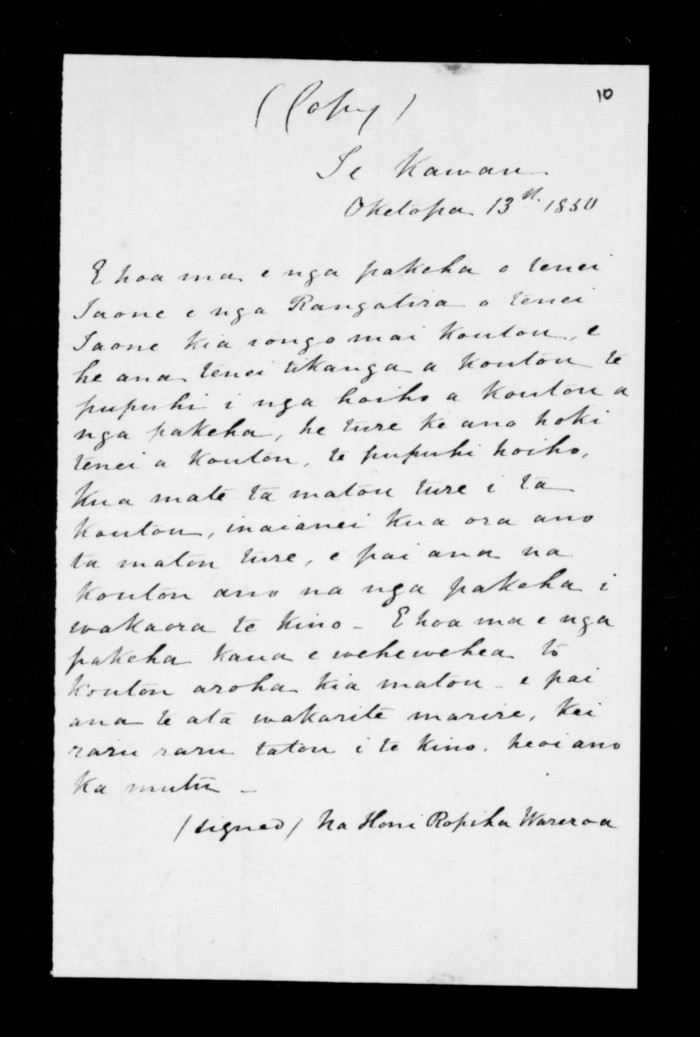 10
(Copy)
Te Kawau
Oketopa 13th 1850
E hoa ma e nga pakeha o tenei
Taone e nga Rangatira o tenei
Taone kia rongo mai koutou, e
he ana tenei tikanga a koutou te
pupuhi i nga hoiho a koutou a
nga pakeha, he ture ke ano hoki
tenei a koutou, te pupuhi hoiho,
kua mate ta matou ture i ta
koutou, inaianei kua ora ano
ta matou ture, e pai ana na
koutou ano na nga pakeha i
wakaora te kino - E hoa ma e nga
pakeha kaua e wehewehea to
koutou aroha kia matou - e pai
ana te ata wakarite marire, kei
raru raru tatou i te kino. heoi ano
ka mutu -
(signed) Na Honi Ropiha Wareroa